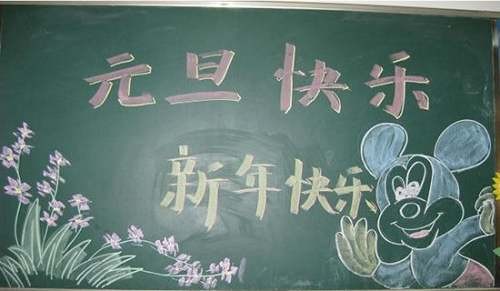 元旦快乐
新年快乐